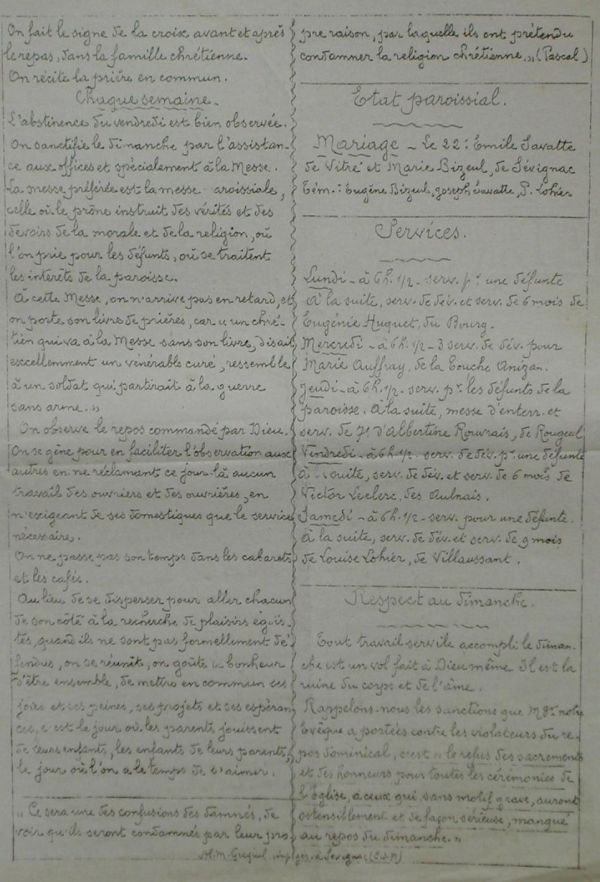 On fait le signe de la croix avant et après
le repas, dans la famille chrétienne.
On récite la prière en commun.
Chaque semaine.
L'abstinence du vendredi est bien observée.
On sanctifie le dimanche par l'assistan-
ce aux offices et spécialement à la Messe.
La messe préférée est la messe aroissiale,
celle où le prône instruit des vérités et des
devoirs de la morale et de la religion, où
l'on prie pour les défunts, où se traitent
les intérêts de la paroisse.
A cette Messe, on n'arrive pas en retard, et
on porte son livre de prières, car, « un chré-
tien qui va à la Messe sans son livre, disait
excellemment un vénérable curé, ressemble
à un soldat qui partirait à la guerre
sans arme. »
On observe le repos commandé par Dieu.
On se gêne pour en faciliter l'observation aux
autres en ne réclamant ce jour là aucun
travail des ouvriers et des ouvrières, en
n'exigeant de ses domestiques que le service
nécessaire.
On ne passe pas son temps dans les cabarets
et les cafés.
Au lieu de se disperser pour aller chacun
de son côté à la recherche de plaisirs égoïs-
tes, quand ils ne sont pas formellement dé-
fendus, on se réunit, on goûte le bonheur
d'être ensemble, de mettre en commun ses
joies et ses peines, ses projets et ses espéran-
ces, c'est le jour où les parents jouissent
de leurs enfants, les enfants de leurs parents,
le jour où l'on a le temps de s'aimer.
« Ce sera une des confusions des damnés, de
voir qu'ils seront condamnés par leur pro-
pre raison, par laquelle ils ont prétendu
condamner la religion chrétienne. » (Pascal)
Etat paroissial.
Mariage - Le 22 : Emile Savatte
de Vitré et Marie Bizeul, de Sévignac
Tém. : Eugène Bizeul, Joseph Savatte, P. Lohier
Services.
Lundi - à 6h. 1/2 - serv. pr une défunte
A la suite, serv. de dév. et serv. de 6 mois de
Eugénie Huguet, du Bourg.
Mercredi - à 6h 1/2 - 3 serv. de dév. pour
Marie Auffray, de la Touche Anizan.
Jeudi - à 6h. 1/2 - serv. pr. les défunts de la
paroisse. A la suite, messe d'enterr. et
serv. de 7j d'Albertine Rouvrais, de Rougeul
Vendredi - à 6h 1/2 - serv. de dév. pr. une défunte
à suite, serv. de dév. et serv. de 6 mois de
Victor Leclerc, des Aulnais.
Samedi - à 6h. 1/2 - serv. pour une défunte.
à la suite, serv. de dév. et serv. de 9 mois
de Louise Lohier, de Villaussant.
Respect au dimanche.
Tout travail servile accompli le diman-
che est un vol fait à Dieu même. Il est la
ruine du corps et de l'âme.
Rappelons-nous les sanctions que Mgr notre
Evêque a portées contre les violateurs du re-
pos dominical, c'est « le refus des sacrements
et des honneurs pour toutes les cérémonies de
l'Eglise, à ceux qui, sans motif grave, auront
ostensiblement et de façon sérieuse, manqué
au repos du dimanche. »
à Sévignac (C.d.N)